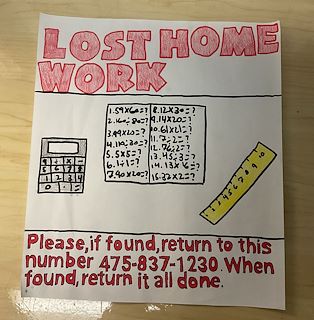 LOST HOME
WORK
1.59X60=?
2.160÷80=?
3.99X20=?
4.110÷30=?
5.5X5=?
6.1÷1=?
7.90X20=?
8.12X30=?
9.14X20=?
10.61X21=?
11.7÷2=?
12.76÷2=?
13.45÷3=?
14.13X16=?
15.32X2=?
Please, if found, return to this
number 475-837-1230. When
found, return it all done.